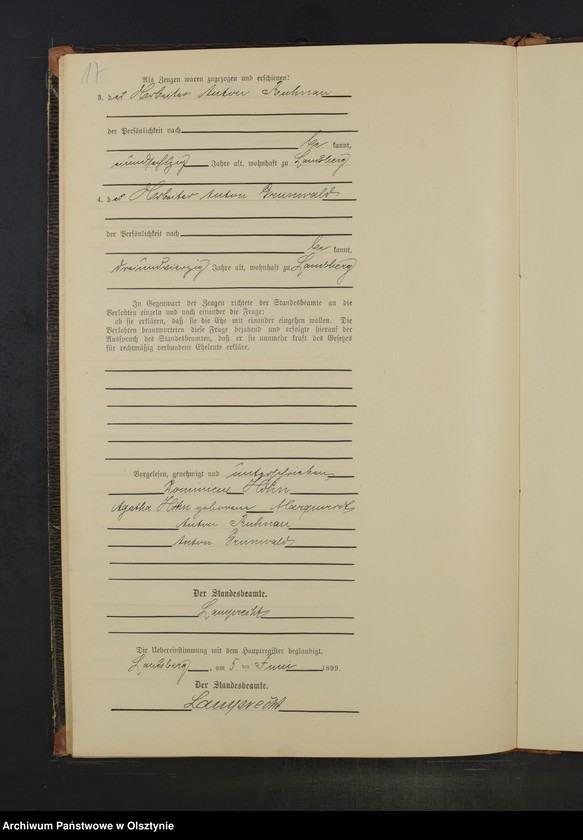 17
Als Zeugen waren zugezogen und erschienen:
3. der Arbeiter Anton Ruhnau
der Persönlichkeit nach
be kannt,
Jahre alt, wohnhaft zu Landsberg
4. der Arbeiter Anton Grunwald
der Persönlichkeit nach
be kannt,
dreiundvierzig Jahre alt, wohnhaft zu Landsberg
In Gegenwart der Zeugen richtete der Standesbeamte an die
Verlobten einzeln und nach einander die Frage:
ob sie erklären, daß sie die Ehe mit einander eingehen wollen. Die
Verlobten beantworteten diese Frage bejahend und erfolgte hierauf der
Ausspruch des Standesbeamten, daß er sie nunmehr kraft des Gesetzes
für rechtmäßig verbundene Eheleute erkläre.
Vorgelesen, genehmigt und unterschrieben
Dominicus Höhn
Agatha Höhn geborene Marquardt
Anton Ruhnau
Anton Grunwald
Der Standesbeamte.
Lamprecht
Die Uebereinstimmung mit dem Hauptregister beglaubigt.
Landsberg, am 5 ten Juni 1899.
Der Standesbeamte.
Lamprecht
Archiwum Państwowe w Olsztynie